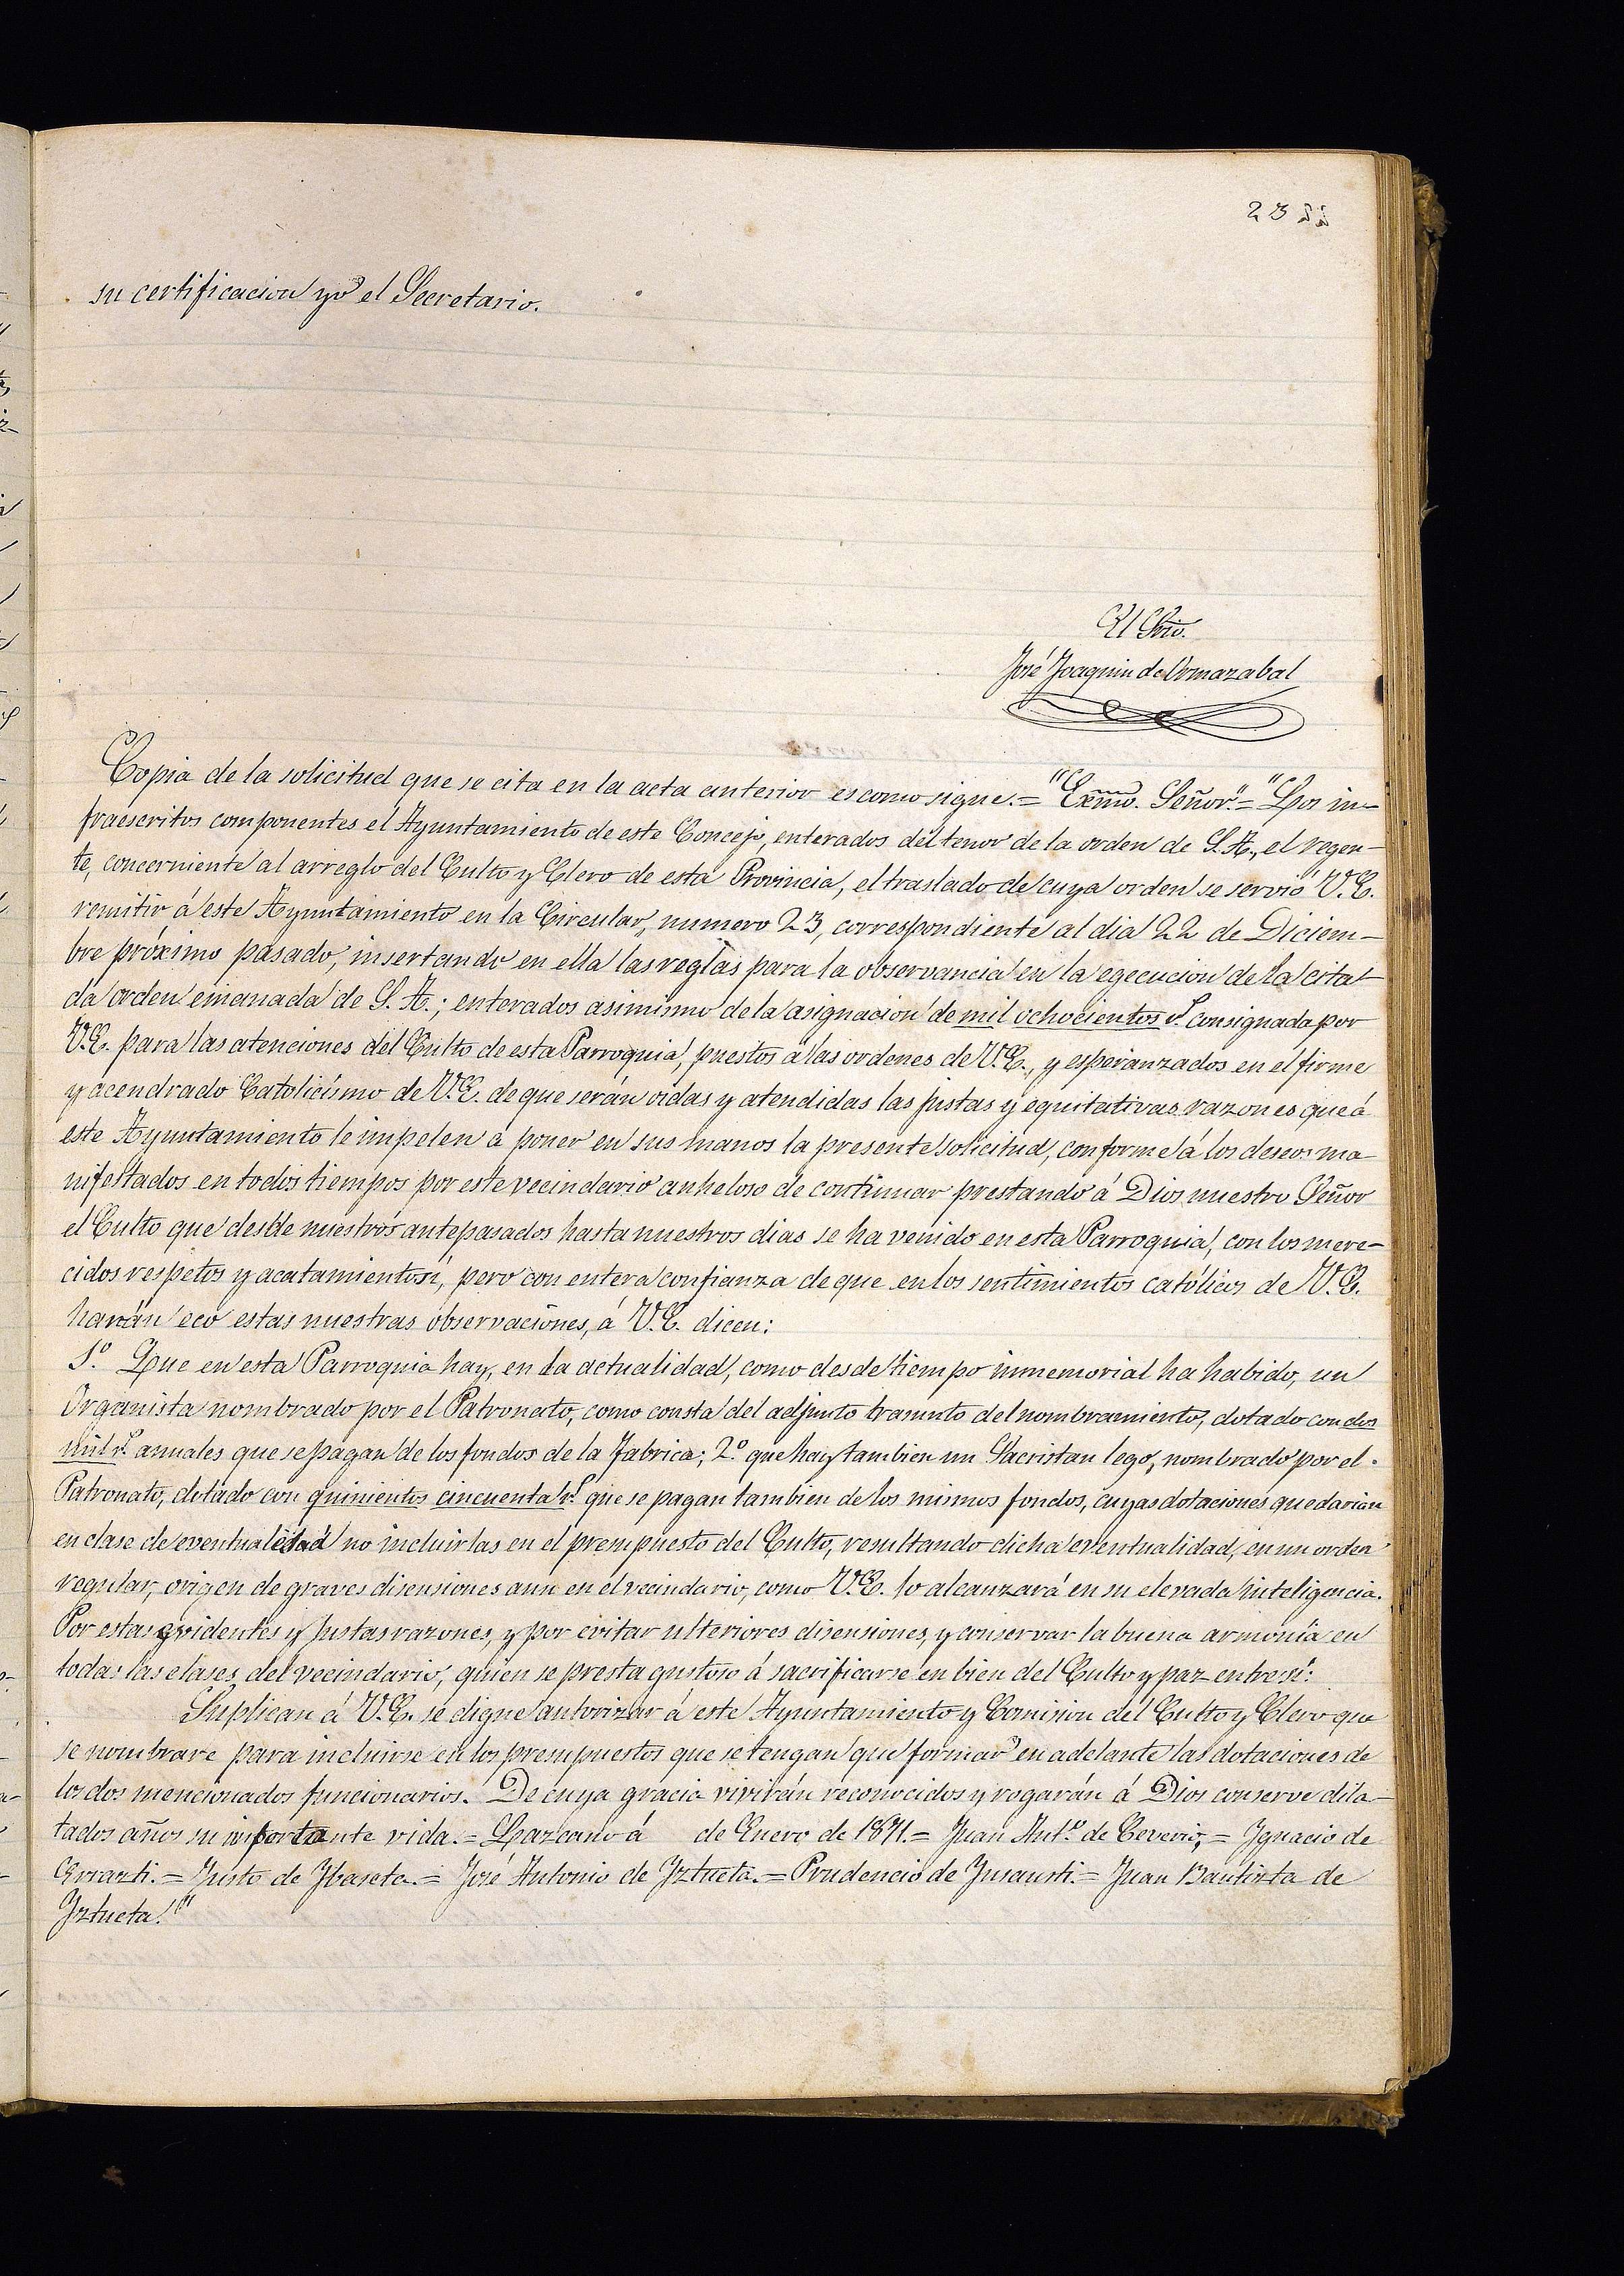 23 22
su certificacion yo el Secretario.
El Srio.
José Joaquin de Ormazabal
Copia de la solicitud que se cita en la acta anterior es como sigue.= "Exmo. Señor."= "Los in-
fraescritos componentes el Ayuntamiento de este Concejo, enterados del tenor de la orden de S. A., el regen-
te, concerniente al arreglo del Culto y Clero de esta Provincia, el traslado de cuya orden se servió V.E.
remitir á este Ayuntamiento en la Circular, numero 23, correspondiente al dia 22 de Diciem-
bre próximo pasado, insertando en ella las reglas para la observancia en la egecucion de la cita-
da orden emanada de S. A.; enterados asimismo de la asignacion de mil ochocientos rs. consignada por
V.E. para las atenciones del Culto de esta Parroquia, puestos á las ordenes de V.E., y esperanzados en el firme
y acendrado Catolicismo de V.E. de que serán oidas y atendidas las justas y equitativas razones que á
este Ayuntamiento le impelen á poner en sus manos la presente solicitud, conforme á los deseos ma-
nifestados en todos tiempos por este vecindario anheloso de continuar prestando á Dios nuestro Señor
el Culto que desde nuestros antepasados hasta nuestros dias se ha venido en esta Parroquia, con los mere-
cidos respetos y acatamientos, pero con entera confianza de que en los sentimientos católicos de V.E.
harán eco estas nuestras observaciones, á V.E. dicen:
1.º Que en esta Parroquia hay, en la actualidad, como desde tiempo inmemorial ha habido, un
Organista nombrado por el Patronato, como consta del adjunto trasunto del nombramiento, dotado con dos
mil rs. anuales que se pagan de los fondos de la Fabrica; 2.º que hay tambien un Sacristan lego, nombrado por el
Patronato, dotado con quinientos cincuenta rs. que se pagan tambien de los mismos fondos, cuyas dotaciones quedarian
en clase de eventualidad no incluirlas en el prempuesto del Culto, resultando dicha eventualidad, en un orden
regular, origen de graves disensiones aun en el vecindario, como V.E. lo alcanzará en su elevada inteligencia.
Por estas evidentes y justas razones, y por evitar ulteriores disensiones, y conservar la buena armonía en
todas las clases del vecindario, quien se presta gustoso á sacrificarse en bien del Culto y paz entre sí:
Suplican á V.E. se digne autorizar á este Ayuntamiento y Comision del Culto y Clero que
se nombrare para incluirse en los prempuestos que se tengan que formar en adelante las dotaciones de
los dos mencionados funcionarios. De cuya gracia vivirán reconocidos y rogarán á Dios conserve dila-
tados años su importante vida.= Lazcano á de Enero de 1871.= Juan Ant.º de Ceverio,= Ignacio de
Errazti.= Justo de Ybaseta.= José Antonio de Yztueta.= Prudencio de Jusausti.= Juan Bautizta de
Yztueta."